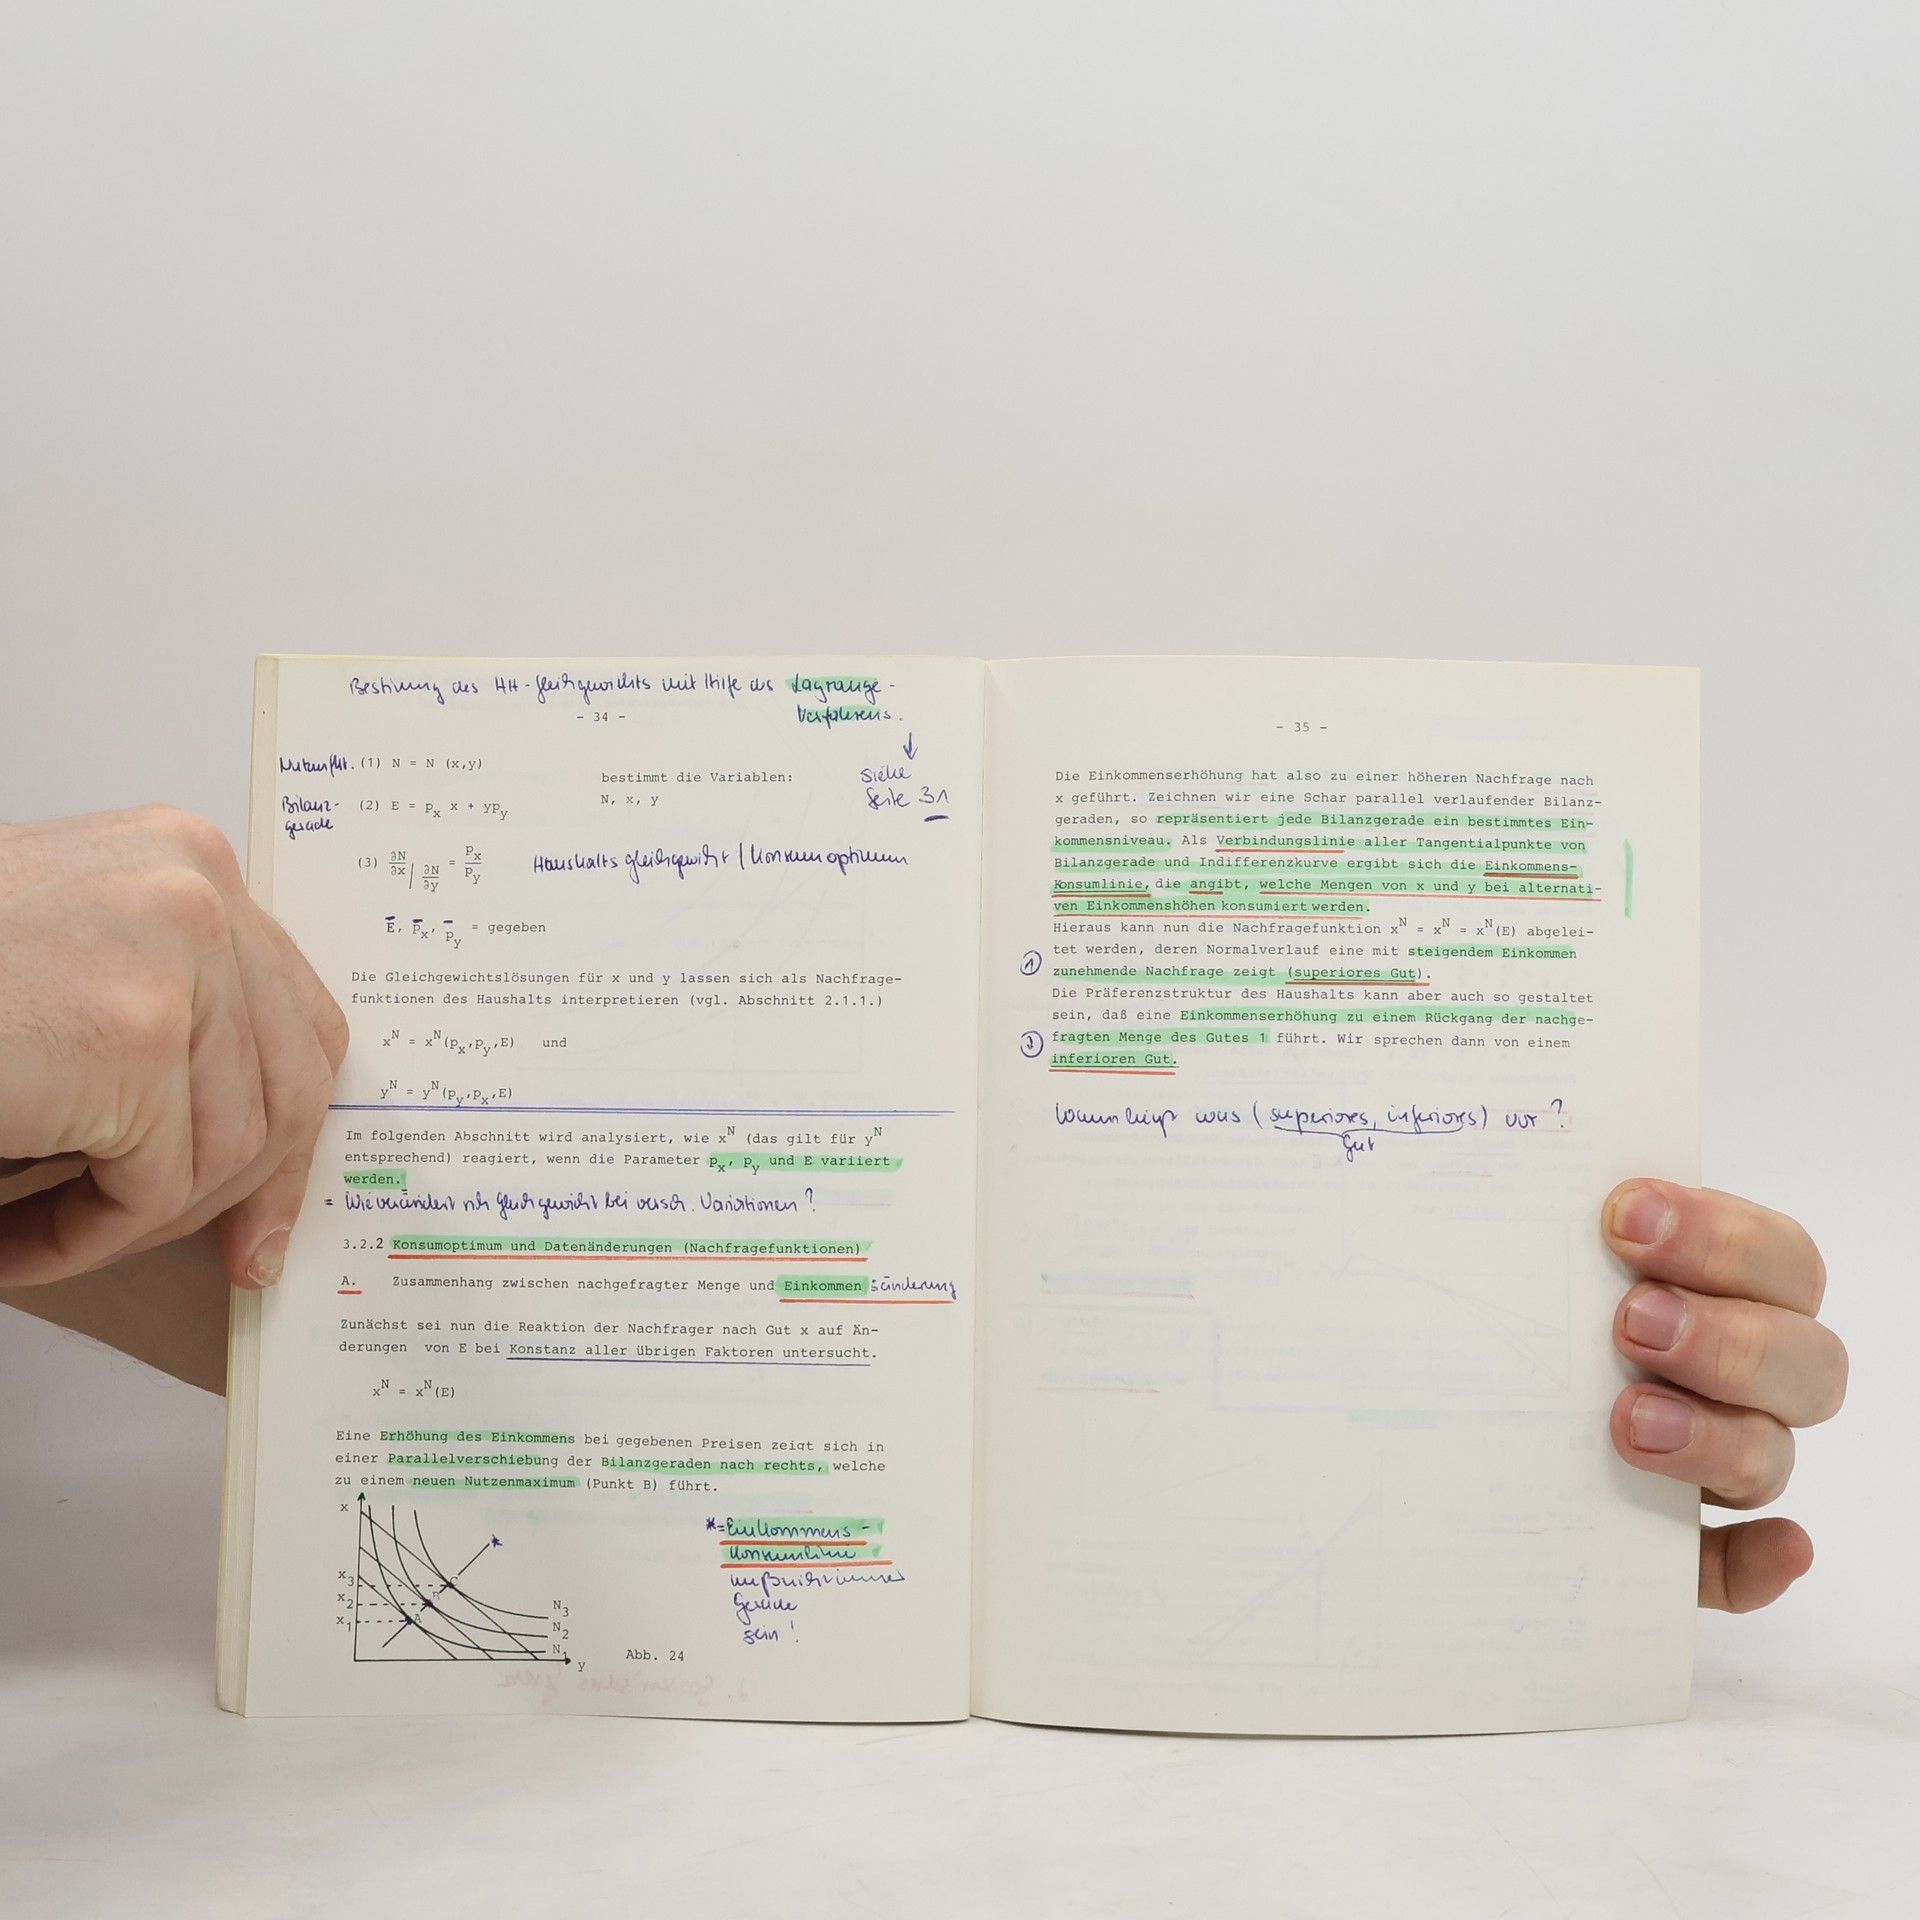 Bestimmung des HH-Gleichgewichts mit Hilfe des Lagrange-
Verfahrens.
- 34 -
siehe
Seite 31
Nutzenfkt. (1) N = N (x,y)
bestimmt die Variablen:
N, x, y
Bilanz-
gerade
(2) E = px x + ypy
(3) ∂N/∂x / ∂N/∂y = px/py
Haushaltsgleichgewicht / Konsumoptimum
E̅, p̅x, p̅y = gegeben
Die Gleichgewichtslösungen für x und y lassen sich als Nachfrage-
funktionen des Haushalts interpretieren (vgl. Abschnitt 2.1.1.)
x^N = x^N(px,py,E) und
y^N = y^N(py,px,E)
Im folgenden Abschnitt wird analysiert, wie x^N (das gilt für y^N
entsprechend) reagiert, wenn die Parameter px, py und E variiert
werden.
= Wie verändert sich Gleichgewicht bei versch. Variationen?
3.2.2 Konsumoptimum und Datenänderungen (Nachfragefunktionen)
A. Zusammenhang zwischen nachgefragter Menge und Einkommensänderung
Zunächst sei nun die Reaktion der Nachfrager nach Gut x auf Än-
derungen von E bei Konstanz aller übrigen Faktoren untersucht.
x^N = x^N(E)
Eine Erhöhung des Einkommens bei gegebenen Preisen zeigt sich in
einer Parallelverschiebung der Bilanzgeraden nach rechts, welche
zu einem neuen Nutzenmaximum (Punkt B) führt.
x
*
x3
x2
x1
C
B
A
N3
N2
N1
y
Abb. 24
*=Einkommens-
Konsumlinie
muß nicht immer
Gerade
sein!
- 35 -
Die Einkommenserhöhung hat also zu einer höheren Nachfrage nach
x geführt. Zeichnen wir eine Schar parallel verlaufender Bilanz-
geraden, so repräsentiert jede Bilanzgerade ein bestimmtes Ein-
kommensniveau. Als Verbindungslinie aller Tangentialpunkte von
Bilanzgerade und Indifferenzkurve ergibt sich die Einkommens-
Konsumlinie, die angibt, welche Mengen von x und y bei alternati-
ven Einkommenshöhen konsumiert werden.
Hieraus kann nun die Nachfragefunktion x^N = x^N = x^N(E) abgelei-
tet werden, deren Normalverlauf eine mit steigendem Einkommen
① zunehmende Nachfrage zeigt (superiores Gut).
Die Präferenzstruktur des Haushalts kann aber auch so gestaltet
sein, daß eine Einkommenserhöhung zu einem Rückgang der nachge-
② fragten Menge des Gutes 1 führt. Wir sprechen dann von einem
inferioren Gut.
Wann liegt was (superiores, inferiores) vor?
Gut